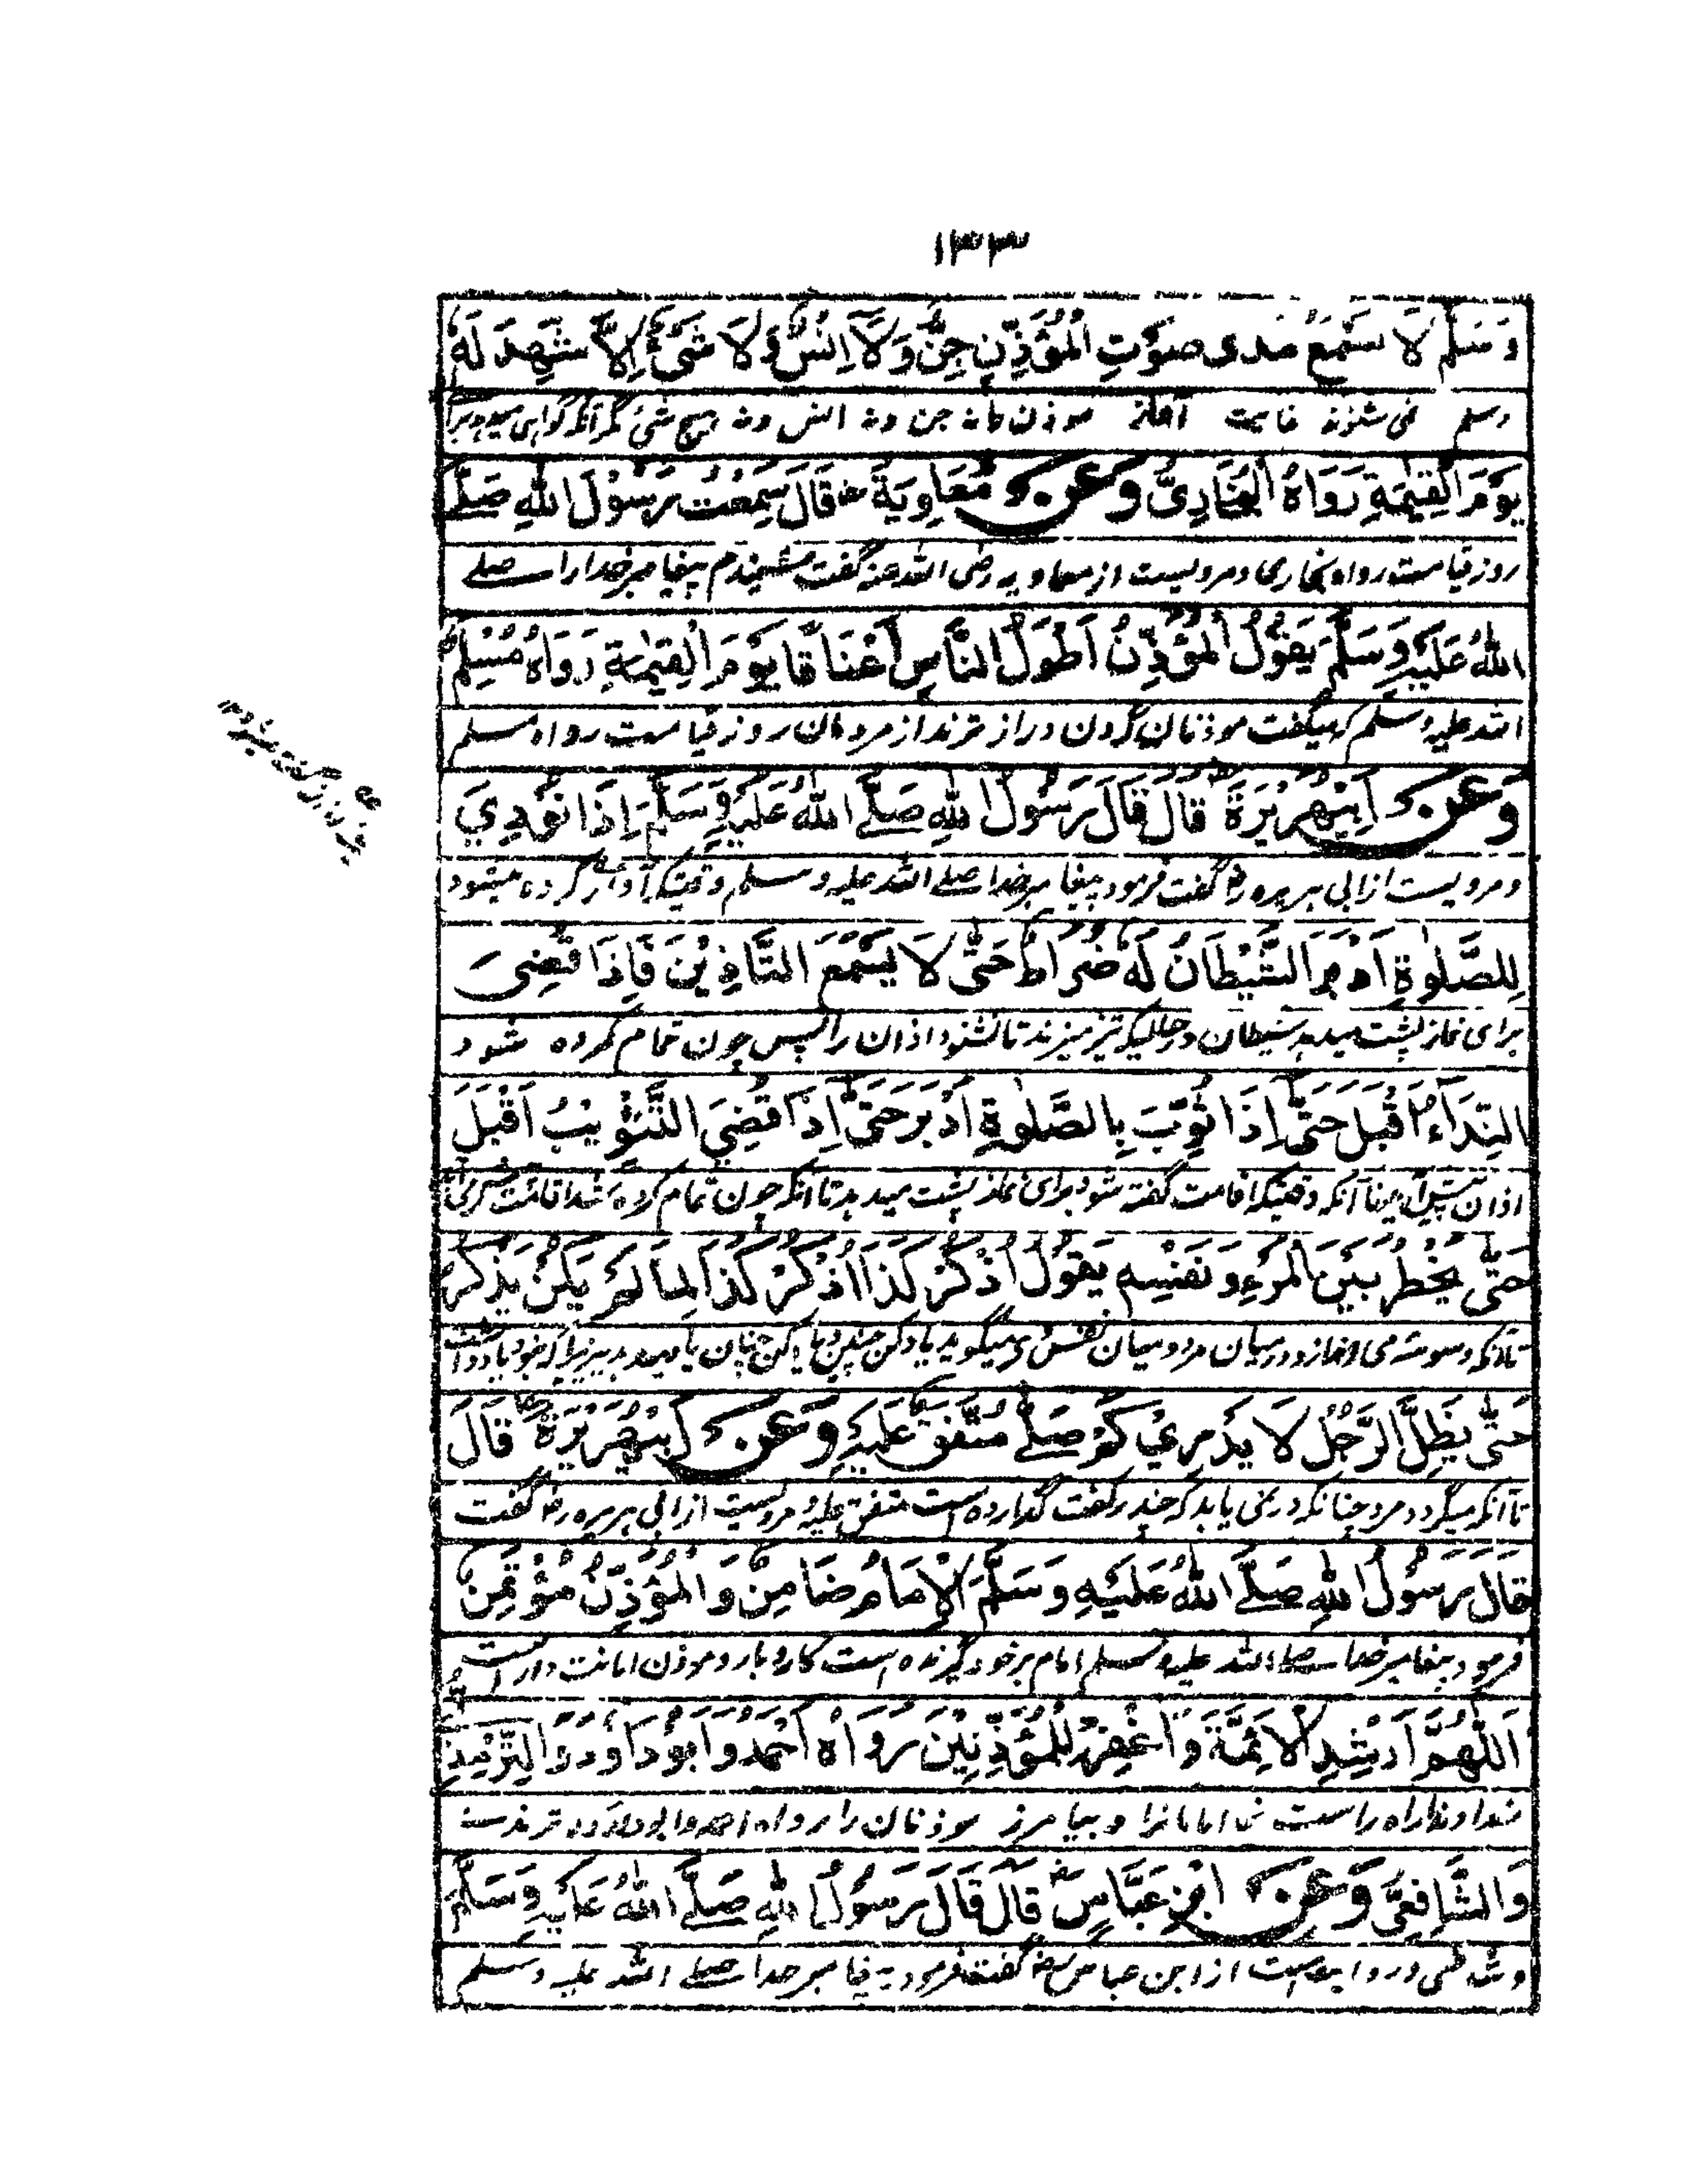 ۱۳۳
وَسَلَّمَ لَا يَسْمَعُ مَدٰى صَوْتِ الْمُؤَذِّنِ جِنٌّ وَّلَا اِنْسٌ وَّلَا شَيْءٌ اِلَّا شَهِدَ لَهٗ
وسلم نمی شنوند غایت آواز موذن را نه جن ونه انس ونه هیچ شئ مگر آنکه گواهی میدهد برا
يَوْمَ الْقِيٰمَةِ رَوَاهُ الْبُخَارِيُّ وَعَنْ مُعَاوِيَةَ رض قَالَ سَمِعْتُ رَسُوْلَ اللّٰهِ صَلَّى
روز قیامت رواه بخاری ومرویست از معاویه رضی الله عنه گفت شنیدم پیغامبر خدا را صلے
اللّٰهُ عَلَيْهِ وَسَلَّمَ يَقُوْلُ الْمُؤَذِّنُ اَطْوَلُ النَّاسِ اَعْنَاقًا يَوْمَ الْقِيٰمَةِ رَوَاهُ مُسْلِمٌ
الله علیه وسلم که میگفت موذنان گردن دراز ترند از مردمان روز قیامت رواه مسلم
وَعَنْ اَبِيْ هُرَيْرَةَ رض قَالَ قَالَ رَسُوْلُ اللّٰهِ صَلَّى اللّٰهُ عَلَيْهِ وَسَلَّمَ اِذَا نُوْدِيَ
ومرویست از ابی هریره رض گفت فرمود پیغامبر خدا صلے الله علیه وسلم وقتیکه آواز کرده میشود
لِلصَّلٰوةِ اَدْبَرَ الشَّيْطَانُ لَهٗ ضُرَاطٌ حَتّٰى لَا يَسْمَعَ التَّاْذِيْنَ فَاِذَا قُضِيَ
برای نماز پشت میدهد شیطان درحالیکه تیز میزند تا نشنود اذان را پس چون تمام کرده شود
النِّدَاءُ اَقْبَلَ حَتّٰى اِذَا ثُوِّبَ بِالصَّلٰوةِ اَدْبَرَ حَتّٰى اِذَا قُضِيَ التَّثْوِيْبُ اَقْبَلَ
اذان پیش می آید تا آنکه وقتیکه اقامت گفته شود برای نماز پشت میدهد تا آنکه چون تمام کرده شد اقامت
حَتّٰى يَخْطُرَ بَيْنَ الْمَرْءِ وَنَفْسِهٖ يَقُوْلُ اُذْكُرْ كَذَا اُذْكُرْ كَذَا لِمَا لَمْ يَكُنْ يَذْكُرُ
تا آنکه وسوسه می اندازد درمیان مرد ومیان نفس وی میگوید یاد کن چنین
حَتّٰى يَظِلَّ الرَّجُلُ لَا يَدْرِيْ كَمْ صَلّٰى مُتَّفَقٌ عَلَيْهِ وَعَنْ اَبِيْ هُرَيْرَةَ رض قَالَ
تا آنکه میگردد مرد چنانکه در نمی یابد که چند رکعت گذارده است متفق علیه ومرویست از ابی هریره رض گفت
قَالَ رَسُوْلُ اللّٰهِ صَلَّى اللّٰهُ عَلَيْهِ وَسَلَّمَ الْاِمَامُ ضَامِنٌ وَالْمُؤَذِّنُ مُؤْتَمَنٌ
فرمود پیغامبر خدا صلے الله علیه وسلم امام برخود گیرنده است کاروبار وموذن امانت دار است
اَللّٰهُمَّ اَرْشِدِ الْاَئِمَّةَ وَاغْفِرْ لِلْمُؤَذِّنِيْنَ رَوَاهُ اَحْمَدُ وَاَبُوْ دَاوٗدَ وَالتِّرْمِذِيُّ
خداوندا راه راست نما امامانرا وبیامرز موذنان را رواه احمد وابوداؤد وترمذے
وَالشَّافِعِيُّ وَعَنْ ابْنِ عَبَّاسٍ رض قَالَ قَالَ رَسُوْلُ اللّٰهِ صَلَّى اللّٰهُ عَلَيْهِ وَسَلَّمَ
وشافعی وروایت است از ابن عباس رض گفت فرمود پیغامبر خدا صلے الله علیه وسلم